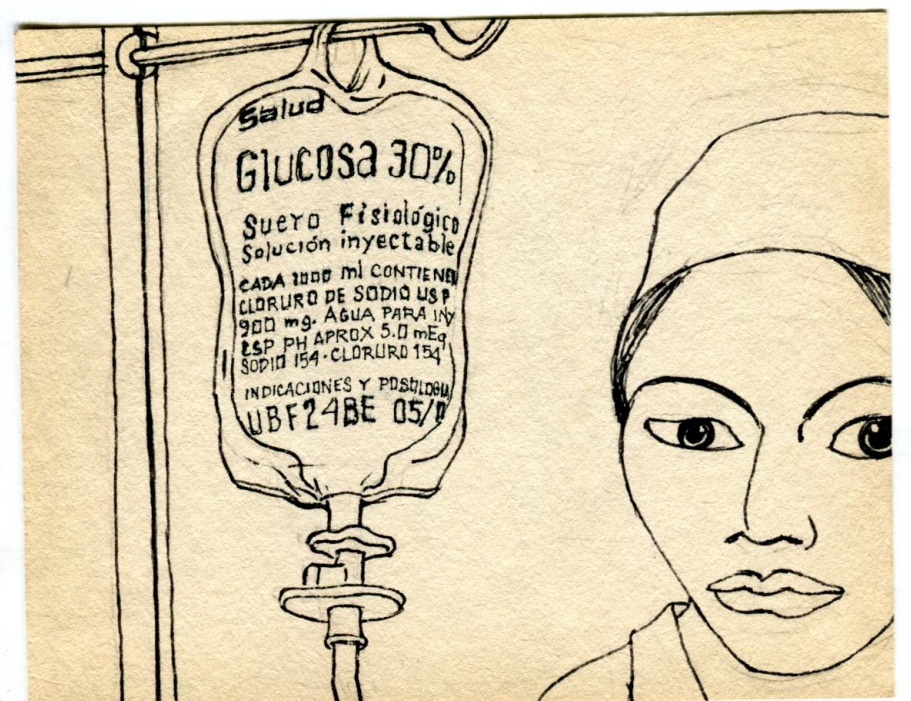 Salud
Glucosa 30%
Suero Fisiológico
Solución inyectable
CADA 1000 ml CONTIENEN
CLORURO DE SODIO USP
900 mg. AGUA PARA INY
CSP PH APROX 5.0 mEq
SODIO 154-CLORURO 154
INDICACIONES Y POSOLOGIA
UBF24BE 05/